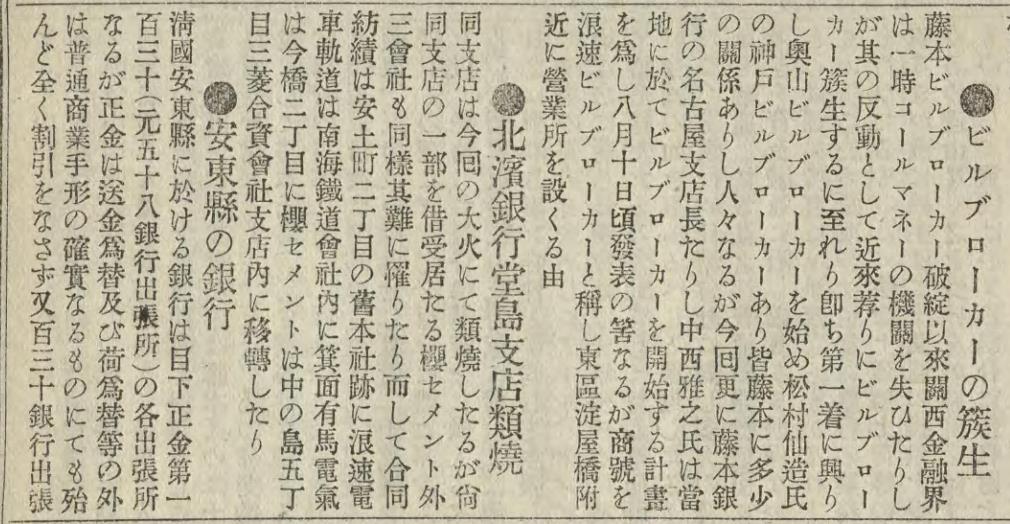 ●ビルブローカーの簇生
藤本ビルブローカー破綻以來關西金融界
は一時コールマネーの機關を失ひたりし
が其の反動として近來荐りにビルブロー
カー簇生するに至れり卽ち第一着に興り
し奧山ビルブローカーを始め松村仙造氏
の神戸ビルブローカーあり皆藤本に多少
の關係ありし人々なるが今囘更に藤本銀
行の名古屋支店長たりし中西雅之氏は當
地に於てビルブローカーを開始する計畫
を爲し八月十日頃發表の筈なるが商號を
浪速ビルブローカーと稱し東區淀屋橋附
近に營業所を設くる由
●北濱銀行堂島支店類燒
同支店は今囘の大火にて類燒したるが尙
同支店の一部を借受居たる櫻セメント外
三會社も同樣其難に罹りたり而して合同
紡績は安土町二丁目の舊本社跡に浪速電
車軌道は南海鐵道會社內に箕面有馬電氣
は今橋二丁目に櫻セメントは中の島五丁
目三菱合資會社支店內に移轉したり
●安東縣の銀行
淸國安東縣に於ける銀行は目下正金第一
百三十(元五十八銀行出張所)の各出張所
なるが正金は送金爲替及び荷爲替等の外
は普通商業手形の確實なるものにても殆
んど全く割引をなさず又百三十銀行出張